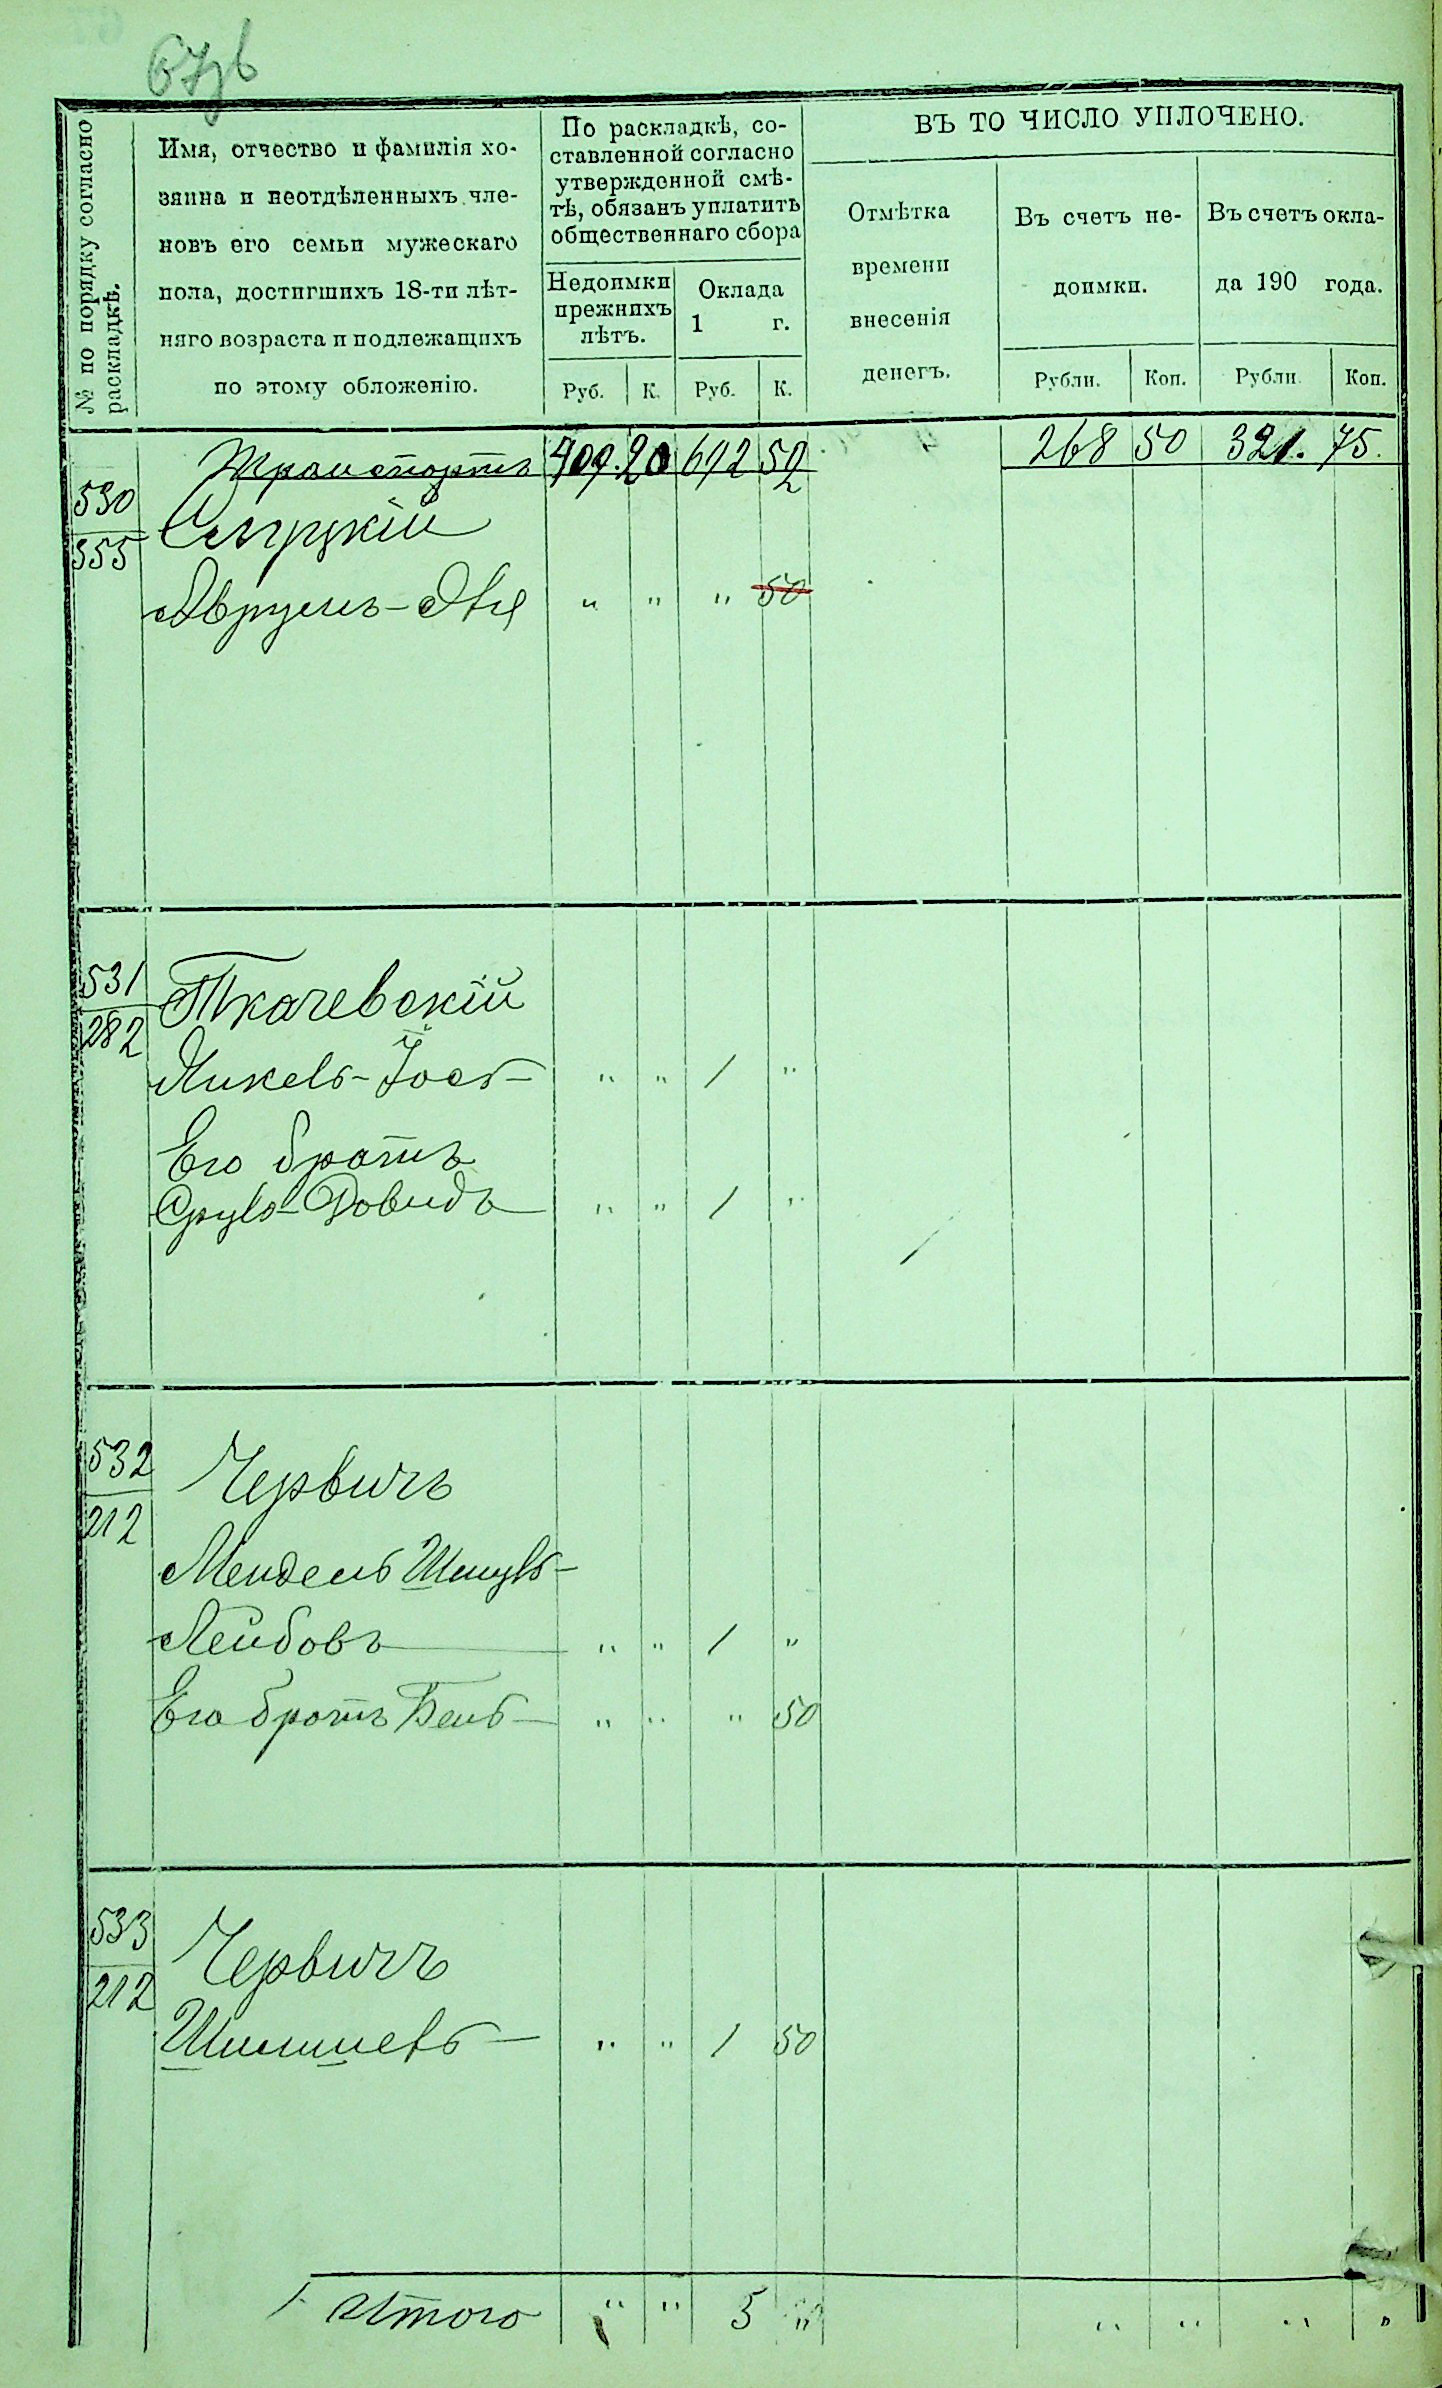 67зв
№ по порядку согласно
раскладкѣ.
Имя, отчество и фамилія хо-
зяина и неотдѣленныхъ чле-
новъ его семьи мужескаго
пола, достигшихъ 18-ти лѣт-
няго возраста и подлежащихъ
по этому обложенію.
По раскладкѣ, со-
ставленной согласно
утвержденной смѣ-
тѣ, обязанъ уплатить
общественнаго сбора
Недоимки
прежнихъ
лѣтъ.
Оклада
1 г.
Руб. К. Руб. К.
ВЪ ТО ЧИСЛО УПЛОЧЕНО.
Отмѣтка
времени
внесенія
денегъ.
Въ счетъ не-
доимки.
Въ счетъ окла-
да 190 года.
Рубли. Коп. Рубли Коп.
Транспортъ 409. 20 612 52 268 50 321. 75.
530
355
Слуцкій
Аврумъ- " " " 50
531
282
Ткачевскій
Янкель- " " 1 "
Его братъ
Сруль-Довидъ " " 1 "
532
212
Червичъ
Мендель Шмуль-
Лейбовъ " " 1 "
Его братъ " " " 50
533
212
Червичъ
" " 1 50
Итого " " 5 " " " " "